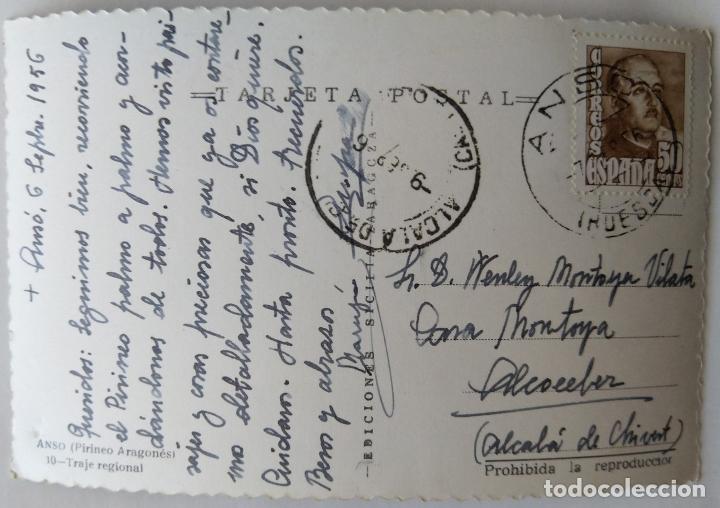 TARJETA POSTAL
+ Ansó, 6 Septe. 1956
Queridos: Seguimos bien, recorriendo
el Pirineo palmo a palmo y acor-
dándonos de todos. Hemos visto pai-
sajes y cosas preciosas que ya os contare-
mo detalladamente, si Dios quiere.
Cuidaos. Hasta pronto. Recuerdos.
Besos y abrazos
ANSO (Pirineo Aragonés)
10—Traje regional
EDICIONES SICILIA ZARAGOZA
CORREOS
ESPAÑA
50
ANSO
(HUESCA)
ALCALA DE
Sr. D. Wenley Montoya Vilata
Casa Montoya
Alcoceber
(Alcalá de Chivert)
Prohibida la reproducción
todocoleccion.net